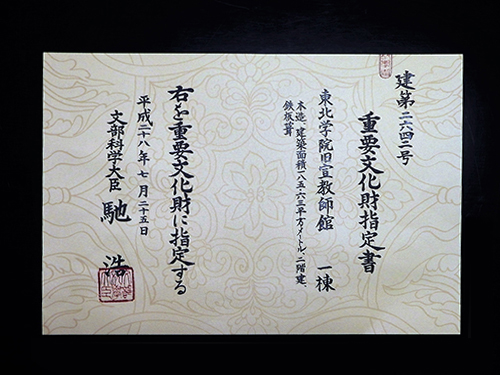 建第二六四二号
重要文化財指定書
東北学院旧宣教師館 一棟
木造、建築面積一八五・六三平方メートル、二階建、
鉄板葺
右を重要文化財に指定する
平成二十八年七月二十五日
文部科学大臣 馳 浩